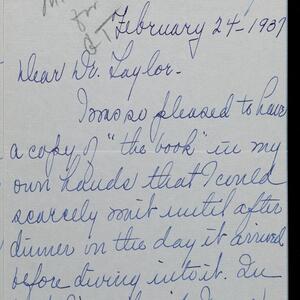 February 24-1937
Dear Dr. Taylor-
I was so pleased to have
a copy of "the book" in my
own hands that I could
scarcely wait until after
dinner on the day it arrived
before diving into it. In